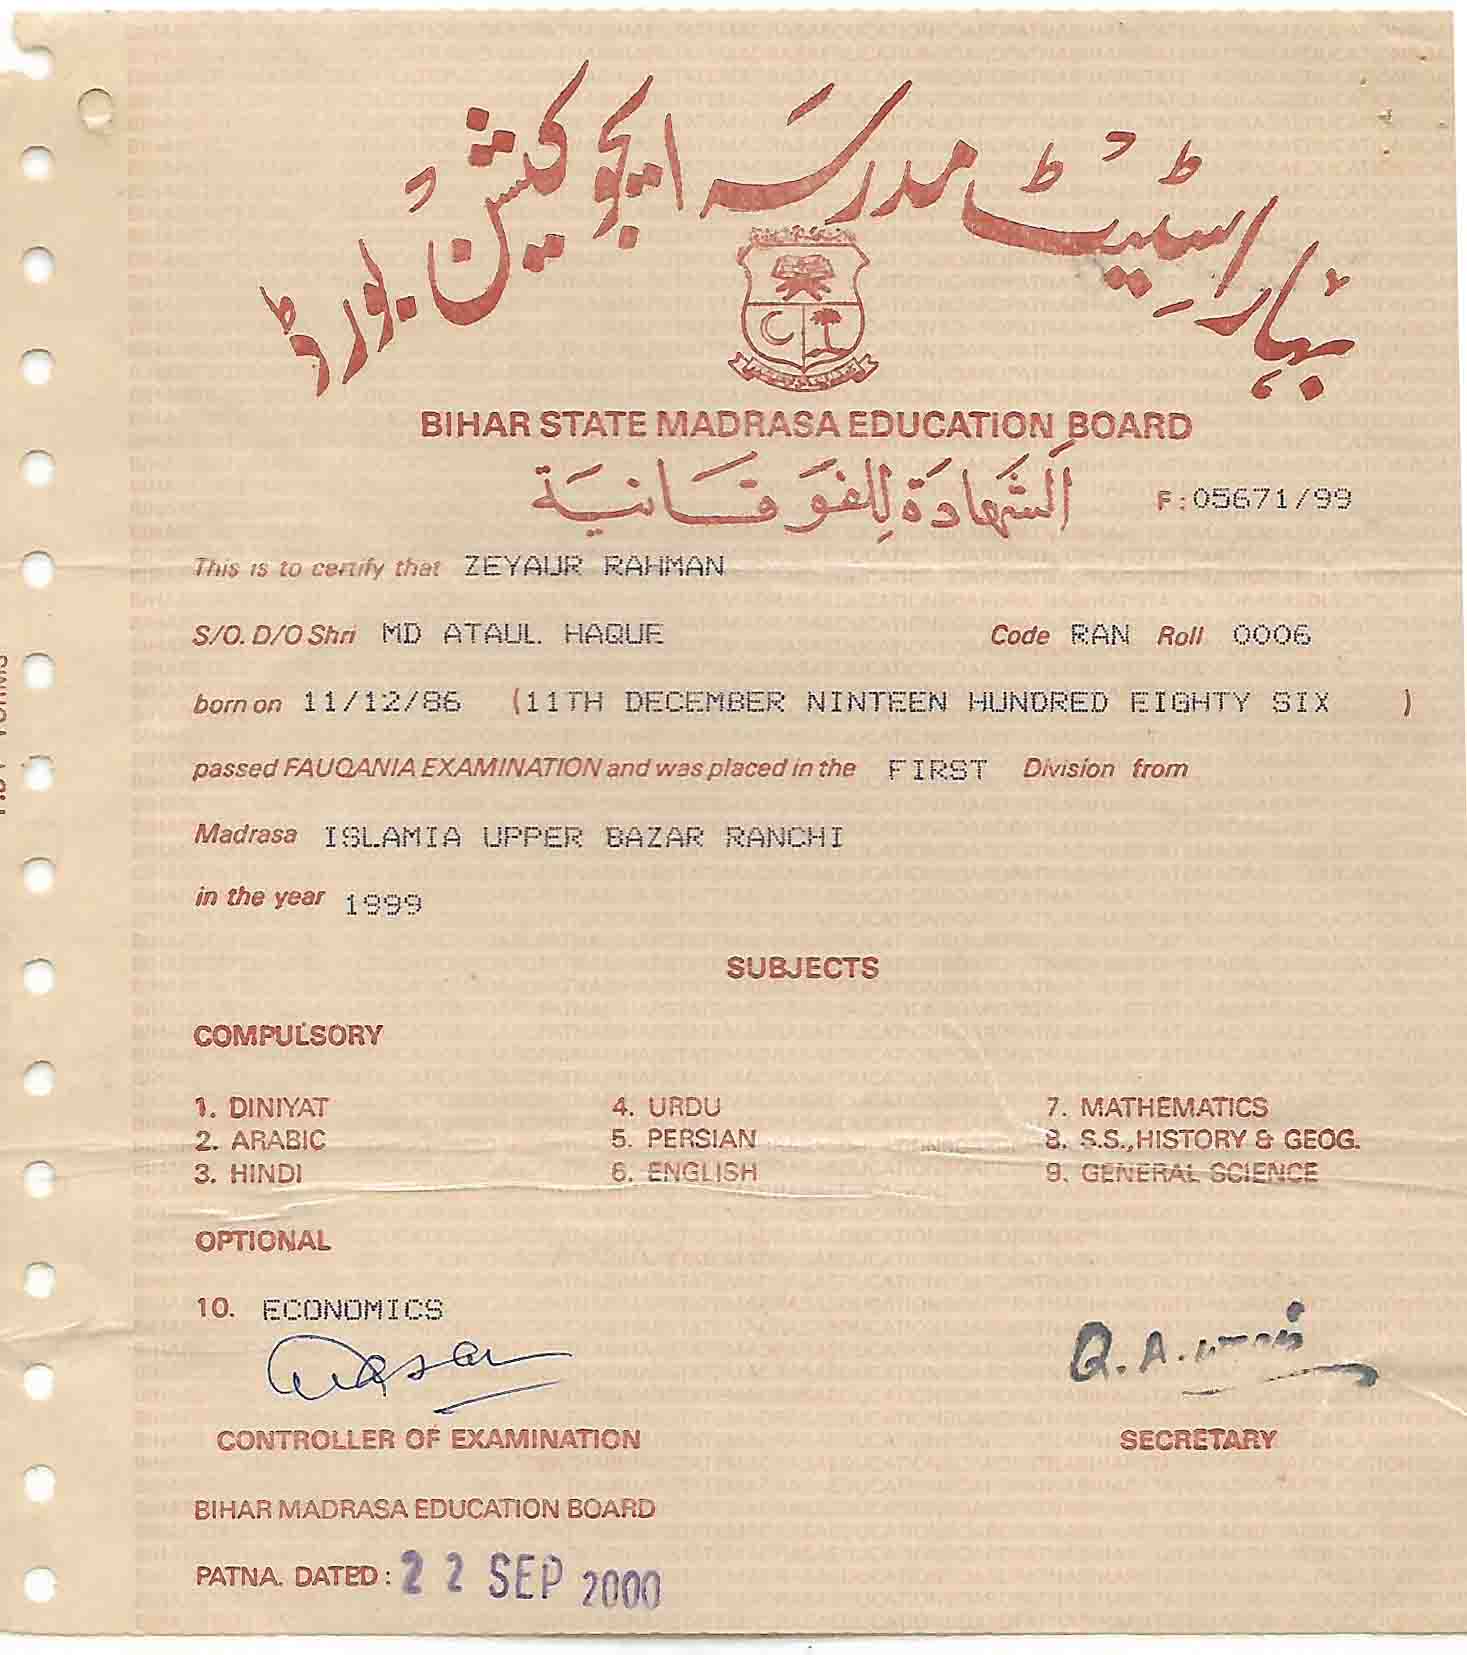 بہار اسٹیٹ مدرسہ ایجوکیشن بورڈ
BIHAR STATE MADRASA EDUCATION BOARD
الشَّهادَة لِلفَوقَانيَة
F:05671/99
This is to certify that ZEYAUR RAHMAN
S/O. D/O Shri MD ATAUL HAQUE Code RAN Roll 0006
born on 11/12/86 (11TH DECEMBER NINTEEN HUNDRED EIGHTY SIX )
passed FAUQANIA EXAMINATION and was placed in the FIRST Division from
Madrasa ISLAMIA UPPER BAZAR RANCHI
in the year 1999
SUBJECTS
COMPULSORY
1. DINIYAT 4. URDU 7. MATHEMATICS
2. ARABIC 5. PERSIAN 8. S.S., HISTORY & GEOG.
3. HINDI 6. ENGLISH 9. GENERAL SCIENCE
OPTIONAL
10. ECONOMICS
Q.A.
CONTROLLER OF EXAMINATION SECRETARY
BIHAR MADRASA EDUCATION BOARD
PATNA. DATED : 22 SEP 2000